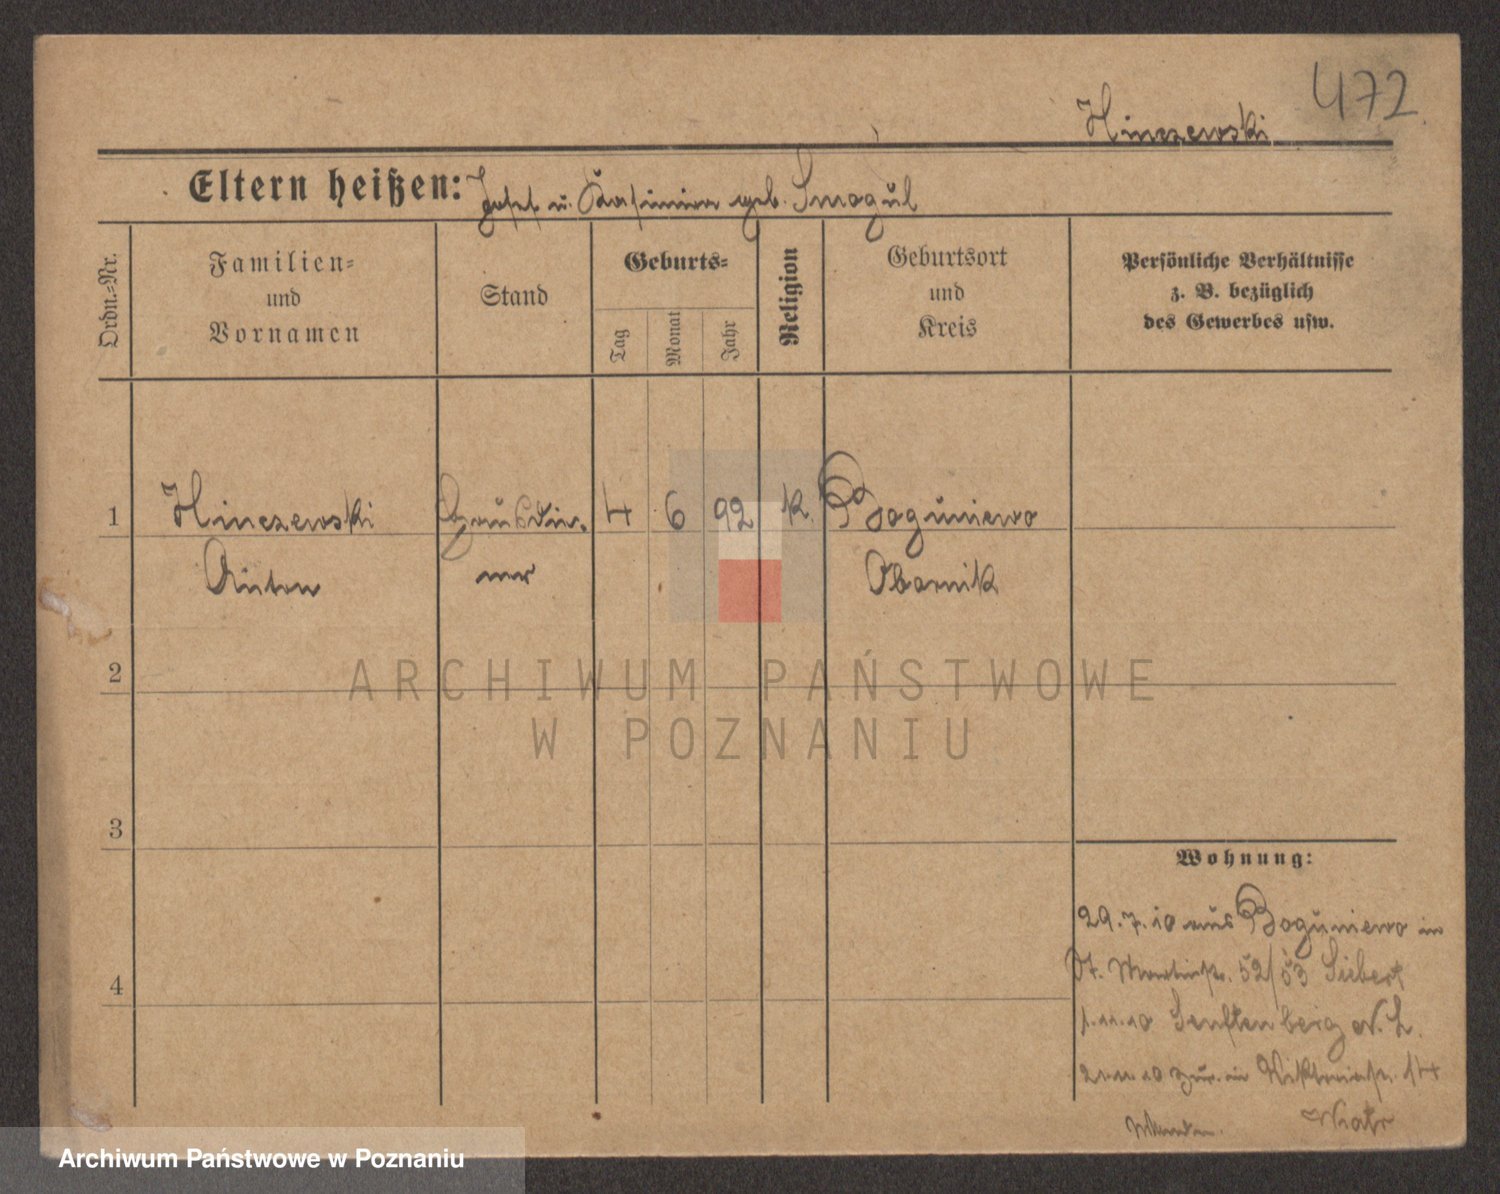 472
Hinczewski
Eltern heißen: Josef u. Kasimira geb. Smogul
Ordn.=Nr.
Familien=
und
Vornamen
Stand
Geburts=
Tag
Monat
Jahr
Religion
Geburtsort
und
Kreis
Persönliche Verhältnisse
z. B. bezüglich
des Gewerbes usw.
1 Hinczewski Hausdie- 4 6 92 k. Boguniewo
Anton ner Obornik
2
3
4
Wohnung:
29.7.10 aus Boguniewo in
St. Martinstr. 52/53 Siebert
1.11.10 Senftenberg N. L.
10 zur. in Viktoriastr. 14
ARCHIWUM PAŃSTWOWE
W POZNANIU
Archiwum Państwowe w Poznaniu